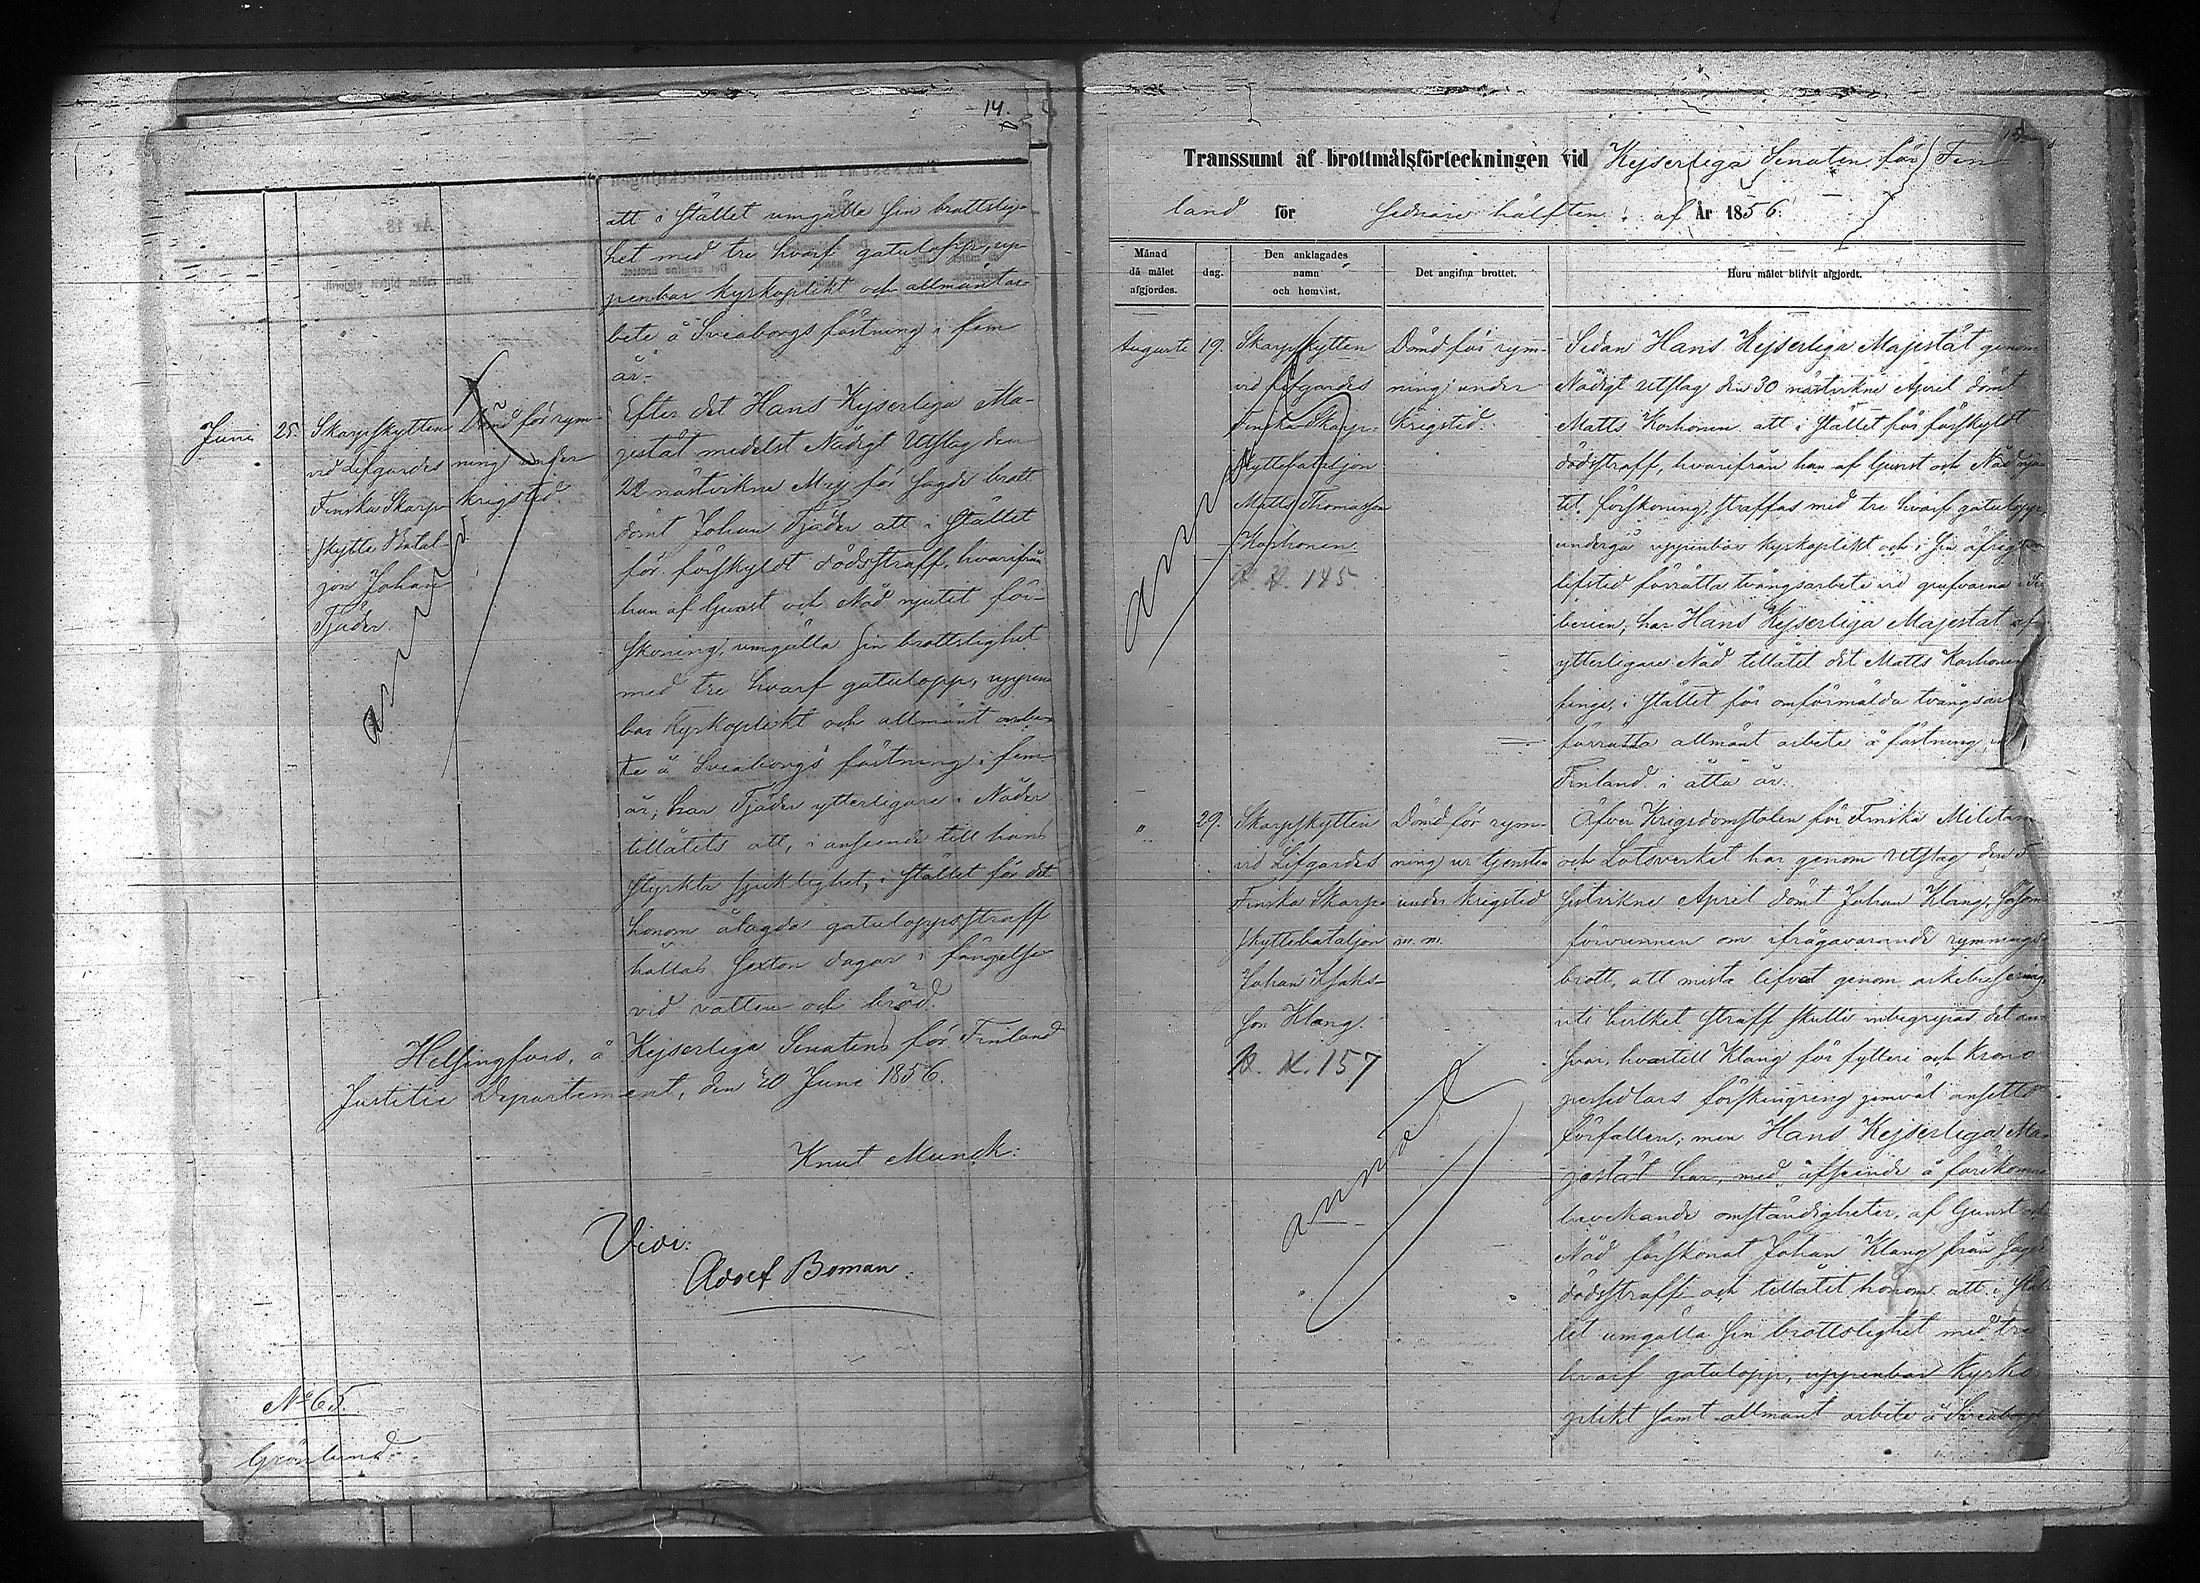 14.
att i stället umgälla sin brottslig-
het med tre hvarf gatulopp, up-
penbar kyrkoplikt och allmänt ar-
bete å Sveaborgs fästning i fem
år.
Juni 25. Skarpskytten
vid Lifgardes
Finska Skarp-
skytte Batal-
jon Johan
Tjäder.
Dömd för rym-
ning under
krigstid.
anmäld
Efter det Hans Kejserliga Ma-
jestät medelst Nådigt Utslag den
22 nästvikne Maj för sagde brott
dömt Johan Tjäder att i stället
för förskyldt dödsstraff, hvarifrån
han af Gunst och Nåd njutit för-
skoning, umgälla sin brottslighet
med tre hvarf gatulopp, uppen-
bar kyrkoplikt och allmänt arbe-
te å Sveaborgs fästning i fem
år, har Tjäder ytterligare i Nåder
tillåtits att, i anseende till hans
styrkta sjuklighet, i stället för det
honom ålagda gatuloppsstraff
hållas sexton dagar i fängelse
vid vatten och bröd.
Helsingfors, å Kejserliga Senatens för Finland
Justitie Departement, den 30 Juni 1856.
Knut Munck.
Vidi:
Adolf Boman.
No 65.
Grönlund
15
Transsumt af brottmålsförteckningen vid Kejserliga Senaten för Fin-
land för sednare hälften af År 1856.
Månad
då målet
afgjordes.
dag.
Den anklagades
namn
och hemvist.
Det angifna brottet.
Huru målet blifvit afgjordt.
Augusti 19. Skarpskytten
vid Lifgardes
Finska Skarp-
skyttebataljon
Matts Thomasson
Korhonen.
K. K. 145
Dömd för rym-
ning under
krigstid.
anmäld
Sedan Hans Kejserliga Majestät genom
Nådigt Utslag den 30 nästvikne April dömt
Matts Korhonen att i stället för förskyldt
dödsstraff, hvarifrån han af Gunst och Nåd nju-
tit förskoning, straffas med tre hvarf gatulopp,
undergå uppenbar kyrkoplikt och i sin öfriga
lifstid förrätta tvångsarbete vid grufvorna i Si-
berien, har Hans Kejserliga Majestät af
ytterligare Nåd tillåtit det Matts Korhonen
finge, i stället för omförmälda tvångsar-
förrätta allmänt arbete å fästning i
Finland i åtta år.
" 29. Skarpskytten
vid Lifgardes
Finska Skarp-
skyttebataljon
Johan Isaks-
son Klang.
K. K. 157
Dömd för rym-
ning ur tjensten
under krigstid
m. m.
anmäld
Öfver Krigsdomstolen för Finska Militären
och Lotsverket har genom Utslag den
sistvikne April dömt Johan Klang, såsom
förvunnen om ifrågavarande rymnings-
brott, att mista lifvet genom arkebusering,
uti hvilket straff skulle inbegripas det an-
svar, hvartill Klang för fylleri och Krono
persedlars förskingring jemväl ansetts
förfallen; men Hans Kejserliga Ma-
jestät har, med afseende å förekomne
bevekande omständigheter, af Gunst och
Nåd förskonat Johan Klang från sagde
dödsstraff och tillåtit honom att i stäl-
let umgälla sin brottslighet med tre
hvarf gatulopp, uppenbar kyrko-
plikt samt allmänt arbete å Sveaborgs